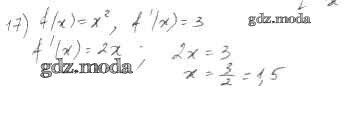 17) f(x) = x², f'(x) = 3
gdz.moda
f'(x) = 2x; 2x = 3
gdz.moda
x = 3/2 = 1,5